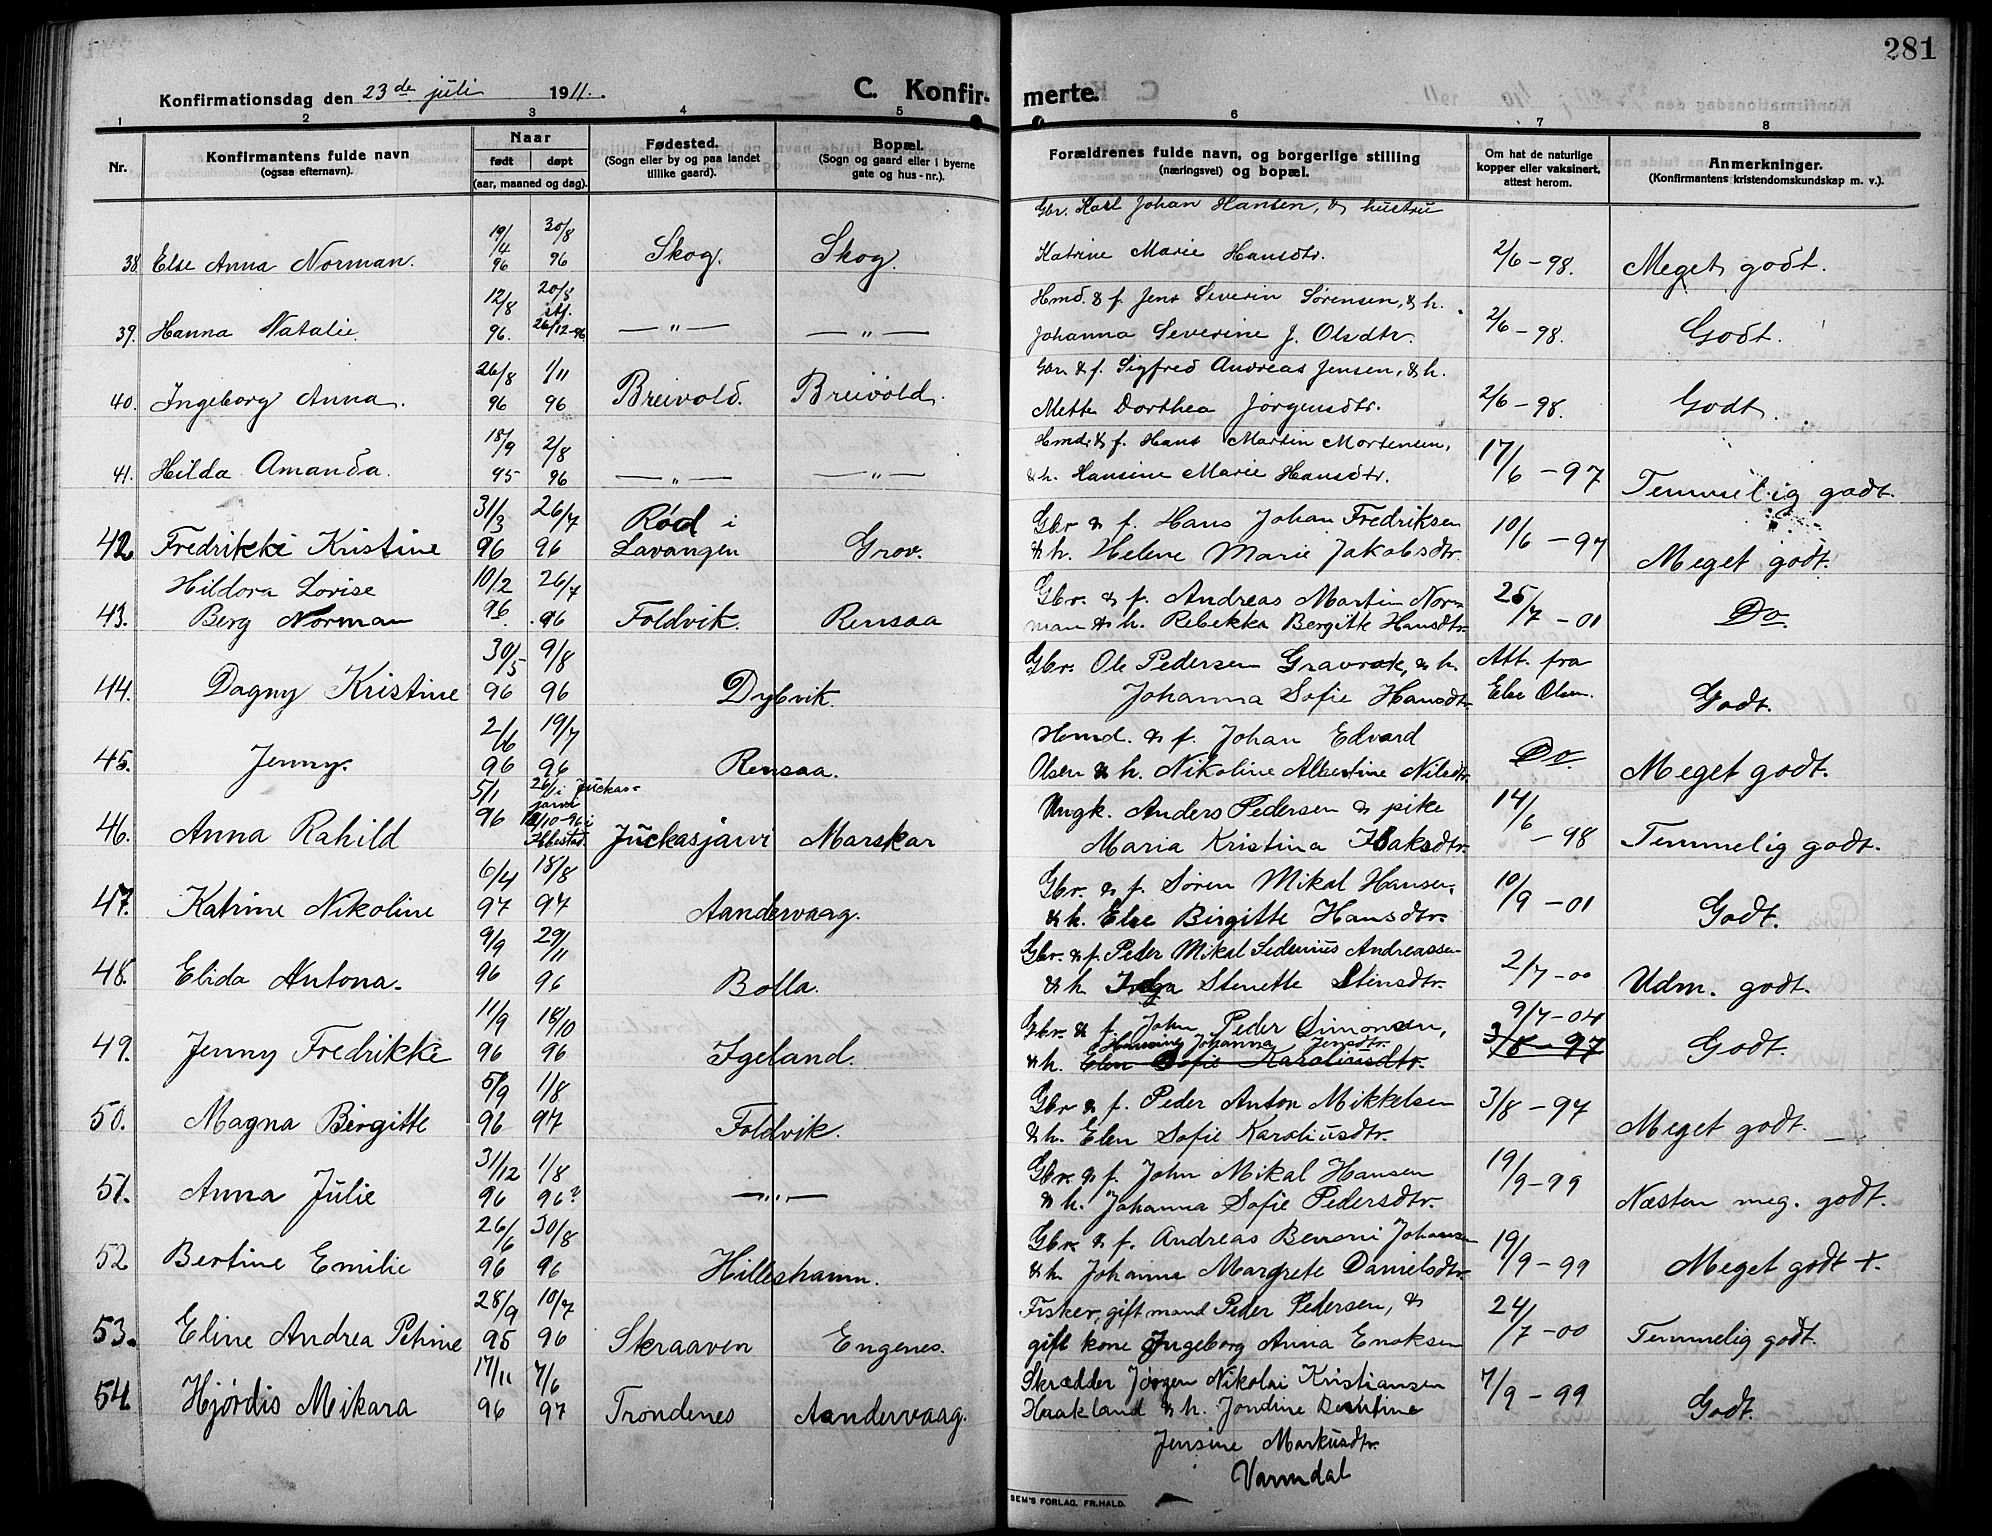 281
Konfirmationsdag den 23de juli 1911.
C. Konfirmerte.
1 2 3 4 5 6 7 8
Nr.
Konfirmantens fulde navn
(ogsaa efternavn).
Naar
født døpt
(aar, maaned og dag).
Fødested.
(Sogn eller by og paa landet
tillike gaard).
Bopæl.
(Sogn og gaard eller i byerne
gate og hus-nr.).
Forældrenes fulde navn, og borgerlige stilling
(næringsvei) og bopæl.
Om hat de naturlige
kopper eller vaksinert,
attest herom.
Anmerkninger.
(Konfirmantens kristendomskundskap m. v.).
Gbr. Karl Johan Hansen, & hustru
19/4 30/8
38. Else Anna Norman. 96 96 Skog. Skog. Katrine Marie Hansdtr. 2/6-98. Meget godt.
12/8 20/8 stf. Hmd. & f. Jens Severin Sørensen, & h.
39. Hanna Natalie. 96. 26/12-96 —„— —„— Johanna Severine J. Olsdtr. 2/6-98. Godt.
26/8 1/11 Gbr & f. Sigfred Andreas Jensen, & h.
40. Ingeborg Anna. 96 96 Breivold. Breivold. Mette Dorthea Jørgensdtr. 2/6-98. Godt.
18/9 2/8 Hmd. & f. Hans Martin Mortensen,
41. Hilda Amanda. 95 96 —„— —„— & h. Hansine Marie Hansdtr. 17/6-97 Temmelig godt.
31/3 26/7 Rød i Gbr & f. Hans Johan Fredriksen
42. Fredrikke Kristine 96 96 Lavangen Grov. & h. Helene Marie Jakobsdtr. 10/6-97 Meget godt.
Hildora Lovise 10/2 26/7 Gbr. & f. Andreas Martin Nor-
43. Berg Norman 96. 96 Foldvik. Rensaa man & h. Rebekka Bergitte Hansdtr. 25/7-01 Do.
30/5 9/8 Gbr. Ole Pedersen Gravrok, & h. Att. fra
44. Dagny Kristine 96 96 Dybvik. Johanna Sofie Hansdtr. Else Olsen. Godt.
2/6 19/7 Hmd. & f. Johan Edvard
45. Jenny. 96 96 Rensaa. Olsen & h. Nikoline Albertine Nilsdtr. Do. Meget godt.
5/1 26/1 i Juckas-
jarvi Ungk. Anders Pedersen & pike 14/6
46. Anna Rahild 96 /10-96 i Ibbestad. Juckasjarvi Marskar Maria Kristina Isaksdtr. -98 Temmelig godt.
6/4 18/8 Gbr. & f. Søren Mikal Hansen,
47. Katrine Nikoline 97 97 Aandervaag. & h. Else Birgitte Hansdtr. 10/9-01 Godt.
9/9 29/11 Gbr. & f. Peder Mikal Sedenius Andreassen
48. Elida Antona. 96 96 Bolla. & h. Stenette Stensdtr. 2/7-00 Udm. godt.
11/9 18/10 Gbr. & f. John Peder Simonsen, 9/7-04
Johanna Jensdtr.
49. Jenny Fredrikke 96 96 Igeland. & h. Elen Sofie Karoliusdtr. 3/8-97 Godt.
5/9 1/8 Gbr & f. Peder Anton Mikkelsen
50. Magna Birgitte 96 97 Foldvik. & h. Elen Sofie Karoliusdtr. 3/8-97 Meget godt.
31/12 1/8 Gbr. & f. John Mikal Hansen
51. Anna Julie 96 96? —„— & h. Johanna Sofie Pedersdtr. 19/9-99 Næsten meg. godt.
26/6 30/8 Gbr. & f. Andreas Benoni Johansen
52 Bertine Emilie 96 96 Hilleshamn. & h. Johanna Margrete Danielsdtr. 19/9-99 Meget godt +.
28/9 10/7 Fisker, gift mand Peder Pedersen, &
53. Eline Andrea Petrine 95 96 Skraaven Engenes. gift kone Ingeborg Anna Enoksen 24/7-00 Temmelig godt.
17/11 7/6 Skrædder Jørgen Nikolai Kristiansen
54 Hjørdis Mikara 96 97 Trondenes Aandervaag. Haakland & h. Jondine 7/9-99 Godt.
Jensine Markusdtr.
Varmdal
SEM'S FORLAG, FR.HALD.